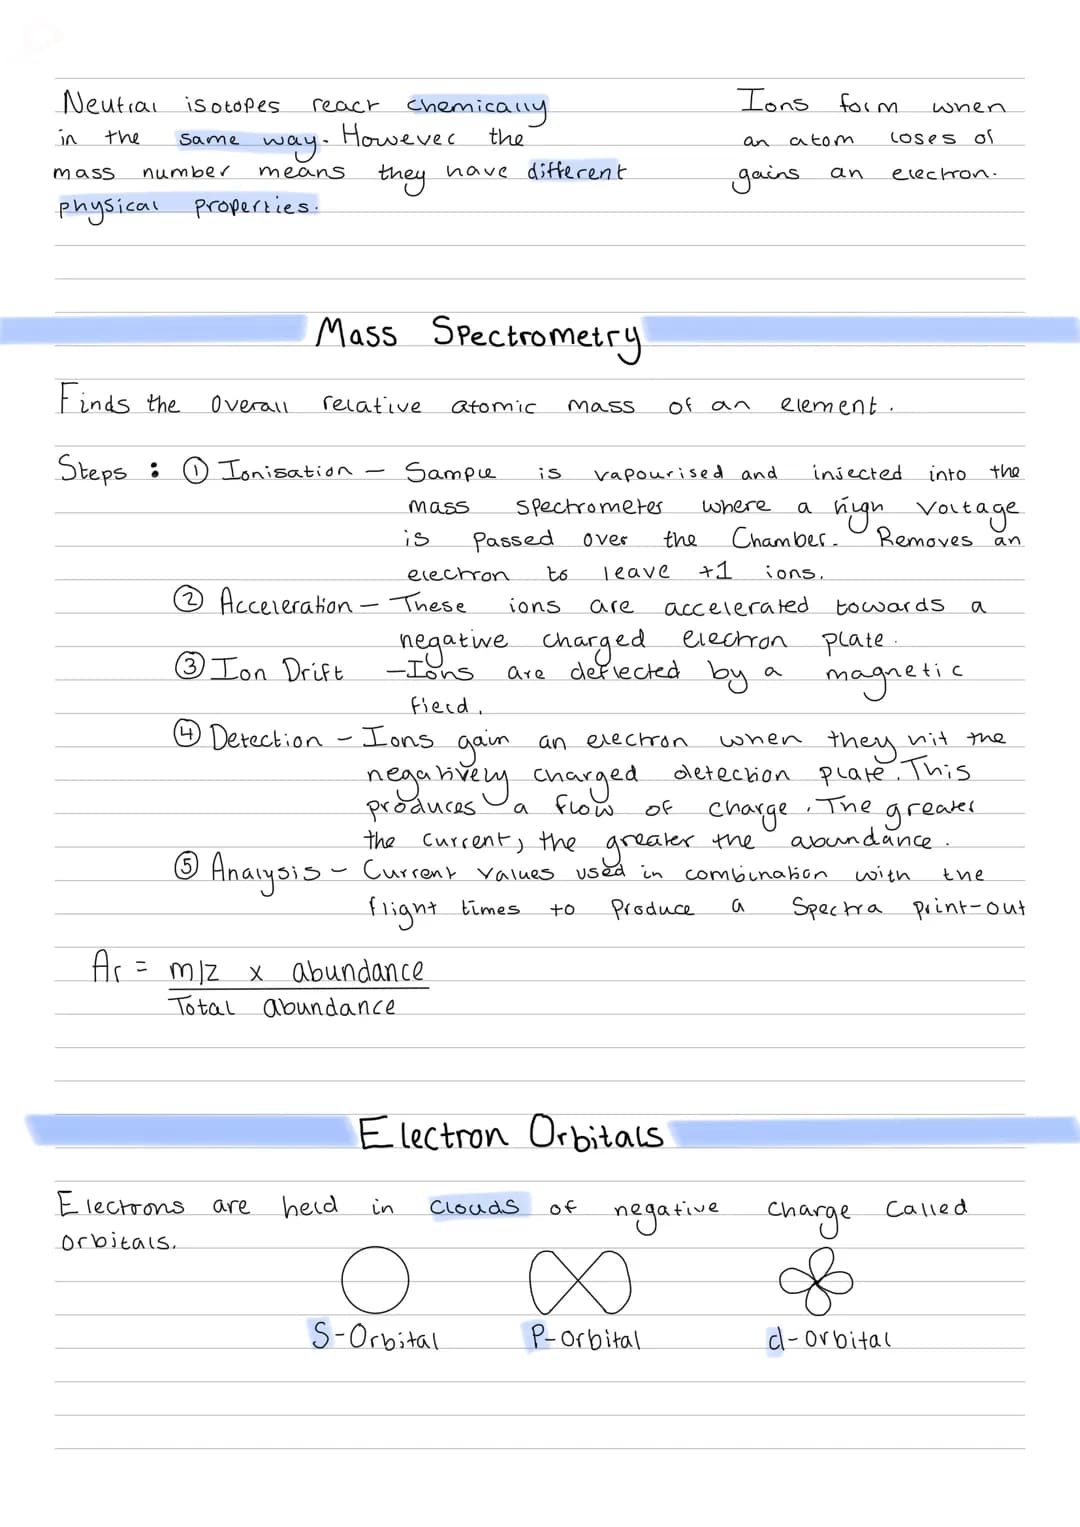 Neutral isotopes react chemically
in the same way. However the
mass number means they have different
physical properties.
Ions form when
an atom loses or
gains an electron.
Mass Spectrometry
Finds the overall relative atomic mass of an element.
Steps : ① Ionisation - Sample is vapourised and injected into the
mass spectrometer where a high voltage
is passed over the chamber. Removes an
electron to leave +1 ions.
② Acceleration - These ions are accelerated towards a
negative charged electron plate.
③ Ion Drift - Ions are deflected by a magnetic
field.
④ Detection - Ions gain an electron when they hit the
negatively charged detection plate. This
produces a flow of charge. The greater
the current, the greater the abundance.
⑤ Analysis - Current values used in combination with the
flight times to produce a spectra print-out
Ar = m/z x abundance
Total abundance
Electron Orbitals
Electrons are held in clouds of negative charge called
orbitals.
S-Orbital P-orbital d-orbital